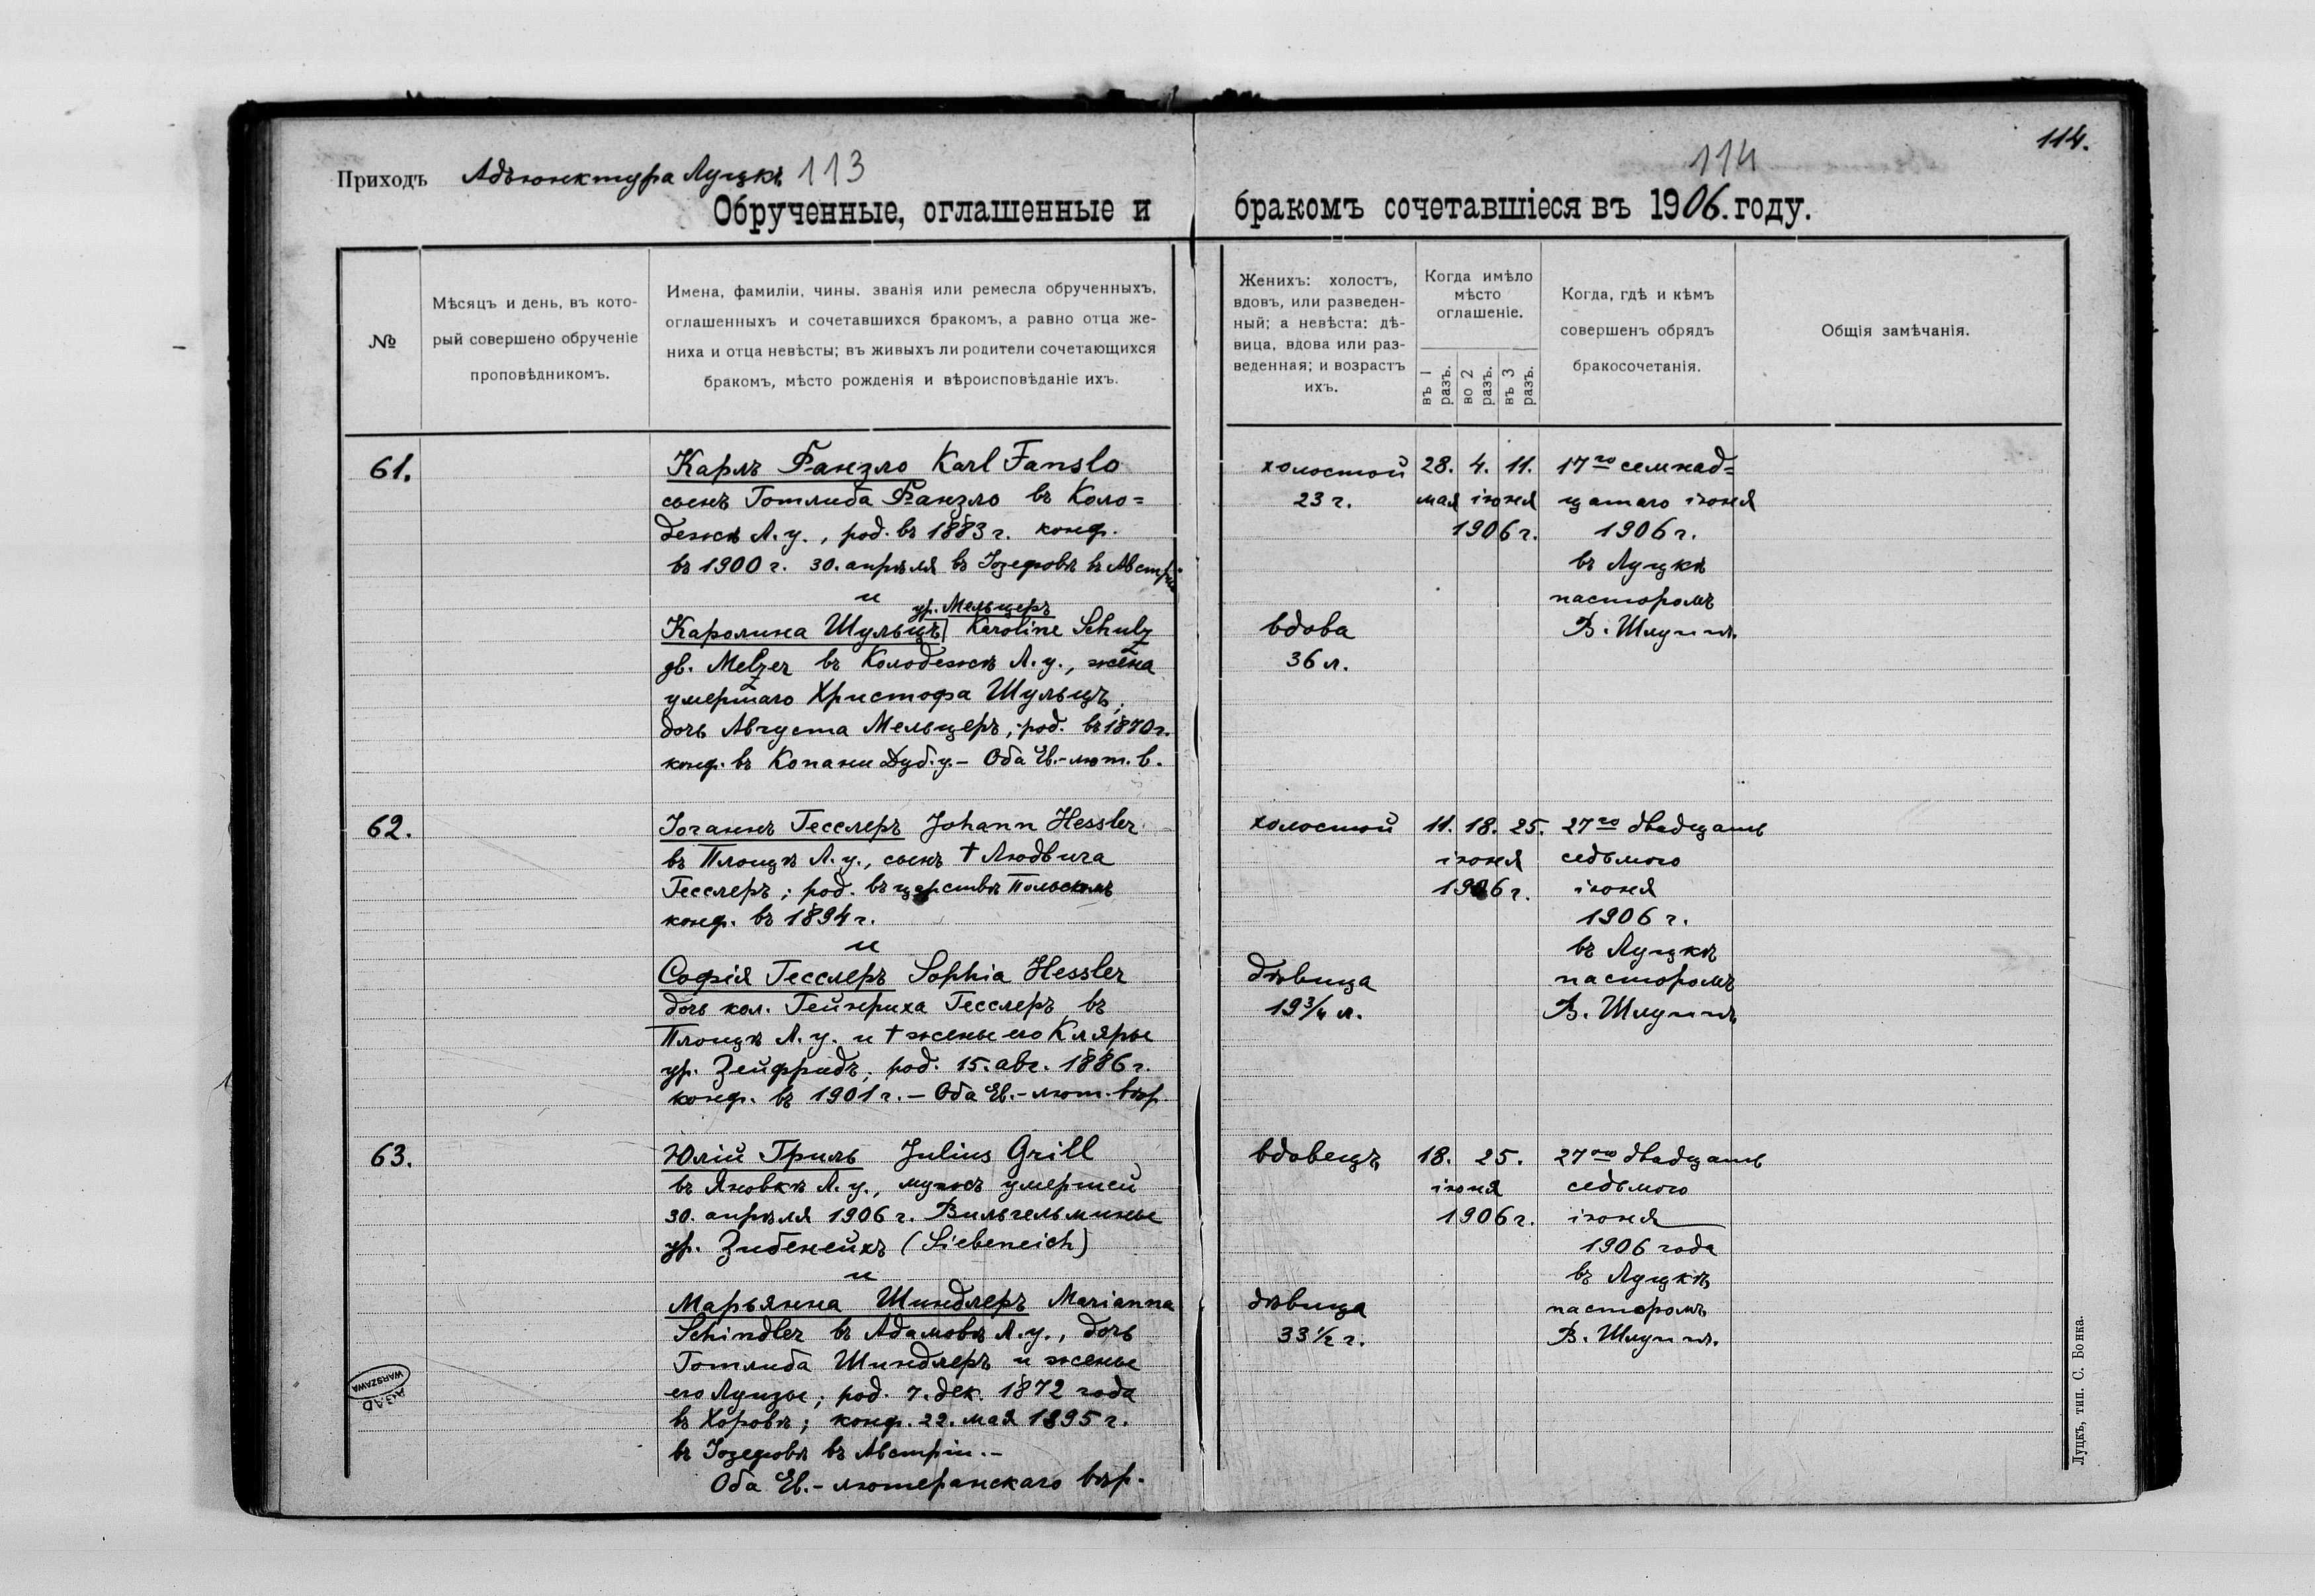 114.
Приходъ Адъюнктура Луцкъ 113
114
Обрученные, оглашенные и бракомъ сочетавшіеся въ 1906. году.
№
Мѣсяцъ и день, въ кото-
рый совершено обрученіе
проповѣдникомъ.
Имена, фамиліи, чины, званія или ремесла обрученныхъ,
оглашенныхъ и сочетавшихся бракомъ, а равно отца же-
ниха и отца невѣсты; въ живыхъ ли родители сочетающихся
бракомъ, мѣсто рожденія и вѣроисповѣданіе ихъ.
Женихъ: холостъ,
вдовъ, или разведен-
ный; а невѣста: дѣ-
вица, вдова или раз-
веденная; и возрастъ
ихъ.
Когда имѣло
мѣсто
оглашеніе.
въ 1 разъ.
во 2 разъ.
въ 3 разъ.
Когда, гдѣ и кѣмъ
совершенъ обрядъ
бракосочетанія.
Общія замѣчанія.
61.
Карлъ Фанзло Karl Fanslo
сынъ Готлиба Фанзло въ Коло=
дежѣ Л. у., род. въ 1883 г. конф.
въ 1900 г. 30. апрѣля въ Іозефовѣ въ Австріи
и
ур. Мельцеръ
Каролина Шульцъ Karoline Schulz
gb. Melzer въ Колодежѣ Л. у., жена
умершаго Христофа Шульцъ,
дочь Августа Мельцеръ, род. въ 1870 г.
конф. въ Копани Дуб. у. – Оба Ев.-лют. в.
холостой
23 г.
вдова
36 л.
28. 4. 11.
мая іюня
1906 г.
17го семнад=
цатаго іюня
1906 г.
въ Луцкѣ
пасторомъ
В. Шлуппъ.
62.
Іоганнъ Гесслеръ Johann Hessler
въ Плоцкѣ Л. у., сынъ † Людвига
Гесслеръ; род. въ царствѣ Польскомъ
конф. въ 1894 г.
и
Софія Гесслеръ Sophia Hessler
дочь кол. Гейнриха Гесслеръ въ
Плоцкѣ Л. у. и † жены его Клары
ур. Зейфридъ; род. 15. авг. 1886 г.
конф. въ 1901 г. – Оба Ев.-лют. вѣр.
холостой
дѣвица
19 3/4 л.
11. 18. 25.
іюня
1906 г.
27го двадцать
седьмого
іюня
1906 г.
въ Луцкѣ
пасторомъ
В. Шлуппъ
63.
Юлій Гриль Julius Grill
въ Яновкѣ Л. у., мужъ умершей
30. апрѣля 1906 г. Вильгельмины
ур. Зибенейхъ (Siebeneich)
и
Марьянна Шиндлеръ Marianna
Schindler въ Адамовѣ Л. у., дочь
Готлиба Шиндлеръ и жены
его Луизы; род. 7. дек. 1872 года
въ Хоровѣ; конф. 22. мая 1895 г.
въ Іозефовѣ въ Австріи. –
Оба Ев.-лютеранскаго вѣр.
вдовецъ
дѣвица
33 1/2 г.
18. 25.
іюня
1906 г.
27го двадцать
седьмого
іюня
1906 года
въ Луцкѣ
пасторомъ
В. Шлуппъ.
AGAD
WARSZAWA
Луцкъ, тип. С. Бонка.